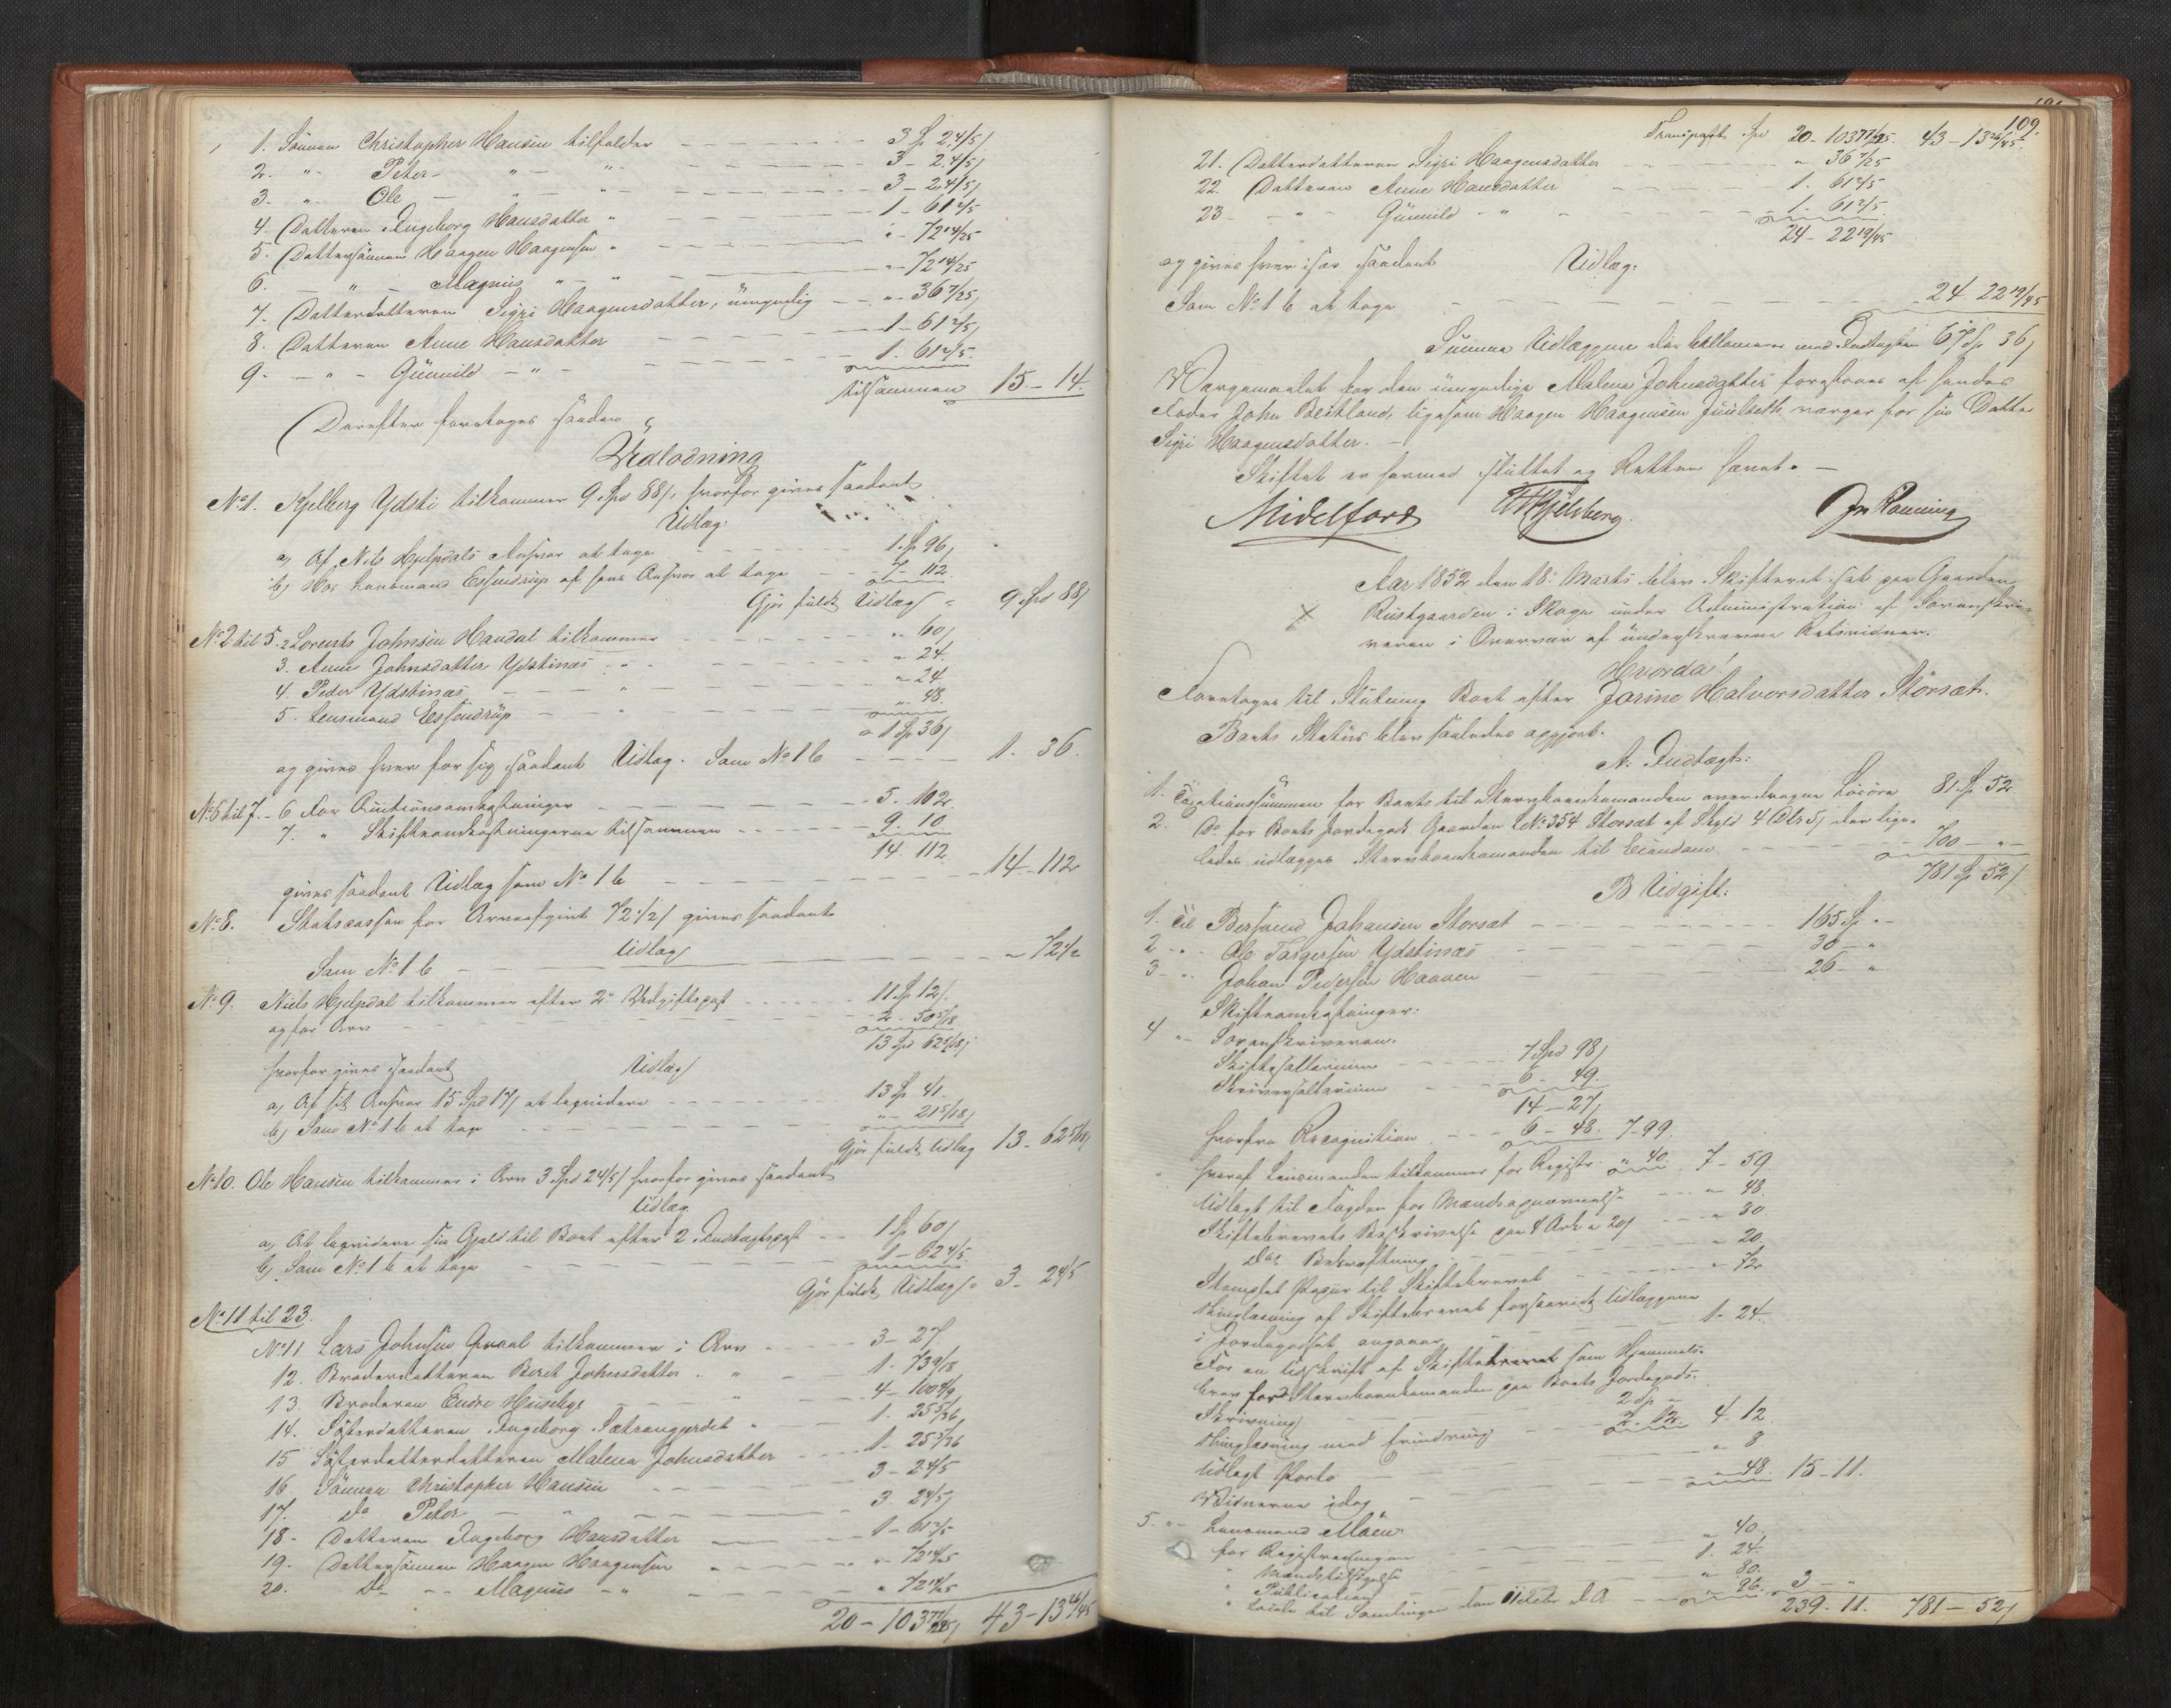 1. Sönnen Christopher Hansen tilfalder - - - 3 Sp 2 4/5 ß
2. " - Peter - " - " - - - 3 - 2 4/5 ß
3. " - Ole - " - " - - - 3 - 2 4/5 ß
4. Datteren Ingeborg Hansdatter " - - - 1 - 61 2/5
5. Dattersönnen Haagen Haagensen " - - - " - 72 14/25
6. - " - Magnus " - " - - - " - 72 14/25
7. Datterdatteren Sigri Haagensdatter, umyndig - - " - 36 7/25
8. Datteren Anne Hansdatter - - - 1 - 61 2/5
9. - " - Gunnild - " - - - 1. 61 2/5
tilsammen 15 - 14.
Derefter foretoges saaden
Udlodning
No 1. Kjelberg Ydsti tilkommer 9 Spd 88 ß, hvorfor gives saadant
Udlæg:
a, Af Nils Hjelpdals Ansvar at tage - - - 1 Sp 96 ß
b, Hos Lensmand Essendrup af hans Ansvar at tage - - - 7 - 112
Gjør fuldt Udlæg = 9 Spd 88 ß
No 2 til 5. 2 Lorents Johnsen Haudal tilkommer - - - " 60 ß
3. Anne Johnsdatter Ydstinæs - " - - - " 24
4. Peder Ydstinæs - - - " 24
5. Lensmand Essendrup - - - " 48.
1 Sp 36 ß
og gives hver for sig saadant Udlæg. Som No 1 b - - - 1. 36.
No 6 til 7. - 6 For Auctionsomkostninger - - - 5. 102.
7. " Skifteomkostningerne tilsammen - - - 9. 10
14. 112
gives saadant Udlæg som No 1 b - - - 14 - 112
No 8. Statscassen for Arveafgivt 72 1/2 ß gives saadant
Udlæg
Som No 1 b - - - " 72 1/2
No 9. Niels Hjelpdal tilkommer efter 2den Udgiftspost - - - 11 Sp 12 ß.
og for Arv - - - 2 - 50 5/18
13 Spd 62 5/18 ß
hvorfor gives saadant Udlæg
a, Af sit Ansvar 15 Spd 17 ß at liqvidere - - - 13 Sp 41.
b, Som No 1 b at tage - - - " - 21 5/18 ß
Gjør fuldt Udlæg 13 - 62 5/18 ß
No 10. Ole Hansen tilkommer i Arv 3 Spd 2 4/5 ß hvorfor gives saadant
Udlæg
a, At liqvidere sin Gjæld til Boet efter 2 Indtægtspost - - 1 Sp 60 ß
b, Som No 1 b at tage - - - 1 - 62 4/5
Gjør fuldt Udlæg = 3 - 2 4/5
No 11 til 23.
No 11 Lars Johnsen tilkommer i Arv - - - 3 - 27
12. Broderdatteren Berit Johnsdatter - " - 1. 73 9/18
13. Broderen Endre Huseby - " - 4 - 100 4/9
14. Sösterdatteren Ingeborg Sætrangjerdet " 1. 25 5/36
15 Sösterdatterdatteren Malena Johnsdatter - - 1 - 25 5/36
16 Sönnen Christopher Hansen - - - 3 - 2 4/5
17. Do Peter - - - 3. 2 4/5 ß
18 - Datteren Ingeborg Hansdatter - - - 1 - 61 2/5
19. Dattersönnen Haagen Haagensen - - - " - 72 14/25
20. Do - - Magnus - " - - - " 72 14/25
20 - 103 77/225 ß 43 - 13 26/45
109.
Transport Spd 20 - 103 77/225. 43 - 13 26/45.
21. Datterdatteren Sigri Haagensdatter - - - " 36 7/25
22. Datteren Anne Hansdatter - - - 1. 61 2/5
23 - - " - Gunnild - " - - - 1. 61 2/5
24 - 22 19/45
og gives hver især saadant Udlæg:
Som No 1 b at tage - - - 24 22 19/45
Summa Udlæggene der ballancerer med Indtægten 67 Sp 36 ß
Værgemaalet for den umyndige Malena Johnsdatter forestaaes af hendes
Fader John Bertland, ligesom Haagen Haagensen Juulseth værger for sin Datter
Sigri Haagensdatter. -
Skiftet er hermed sluttet og Retten hævet. -
Midelfart Kjelsberg Jn Rønning
Aar 1852 den 18de Marts blev Skifteret sat paa Gaarden
Rustgaarden i Skogn under Administration af Sorenskri-
veren i Overvær af undeskrevne Retsvidner.
Hvorda!
Foretoges til Slutning Boet efter Jorine Halvorsdatter Storsæt.
Boets Status blev saaledes opgjort.
A. Indtægt:
1. Taxationssummen for Boets til Stervboenkemanden overdragne Løsøre 81 Sp 52
2. Do for Boets Jordegods Gaarden L.No 354 Storsæt af Skyld 4 Dlr 5 ß der lige-
ledes udlægges Stervboenkemanden til Eiendom - - - 700 - " -
781 Sp 52 ß
B Udgift:
1. Til Bersvend Johansen Storsæt - - - 165 Sp " -
2 - " - Ole Torgersen Ydstinæs - - - 30 - "
3 - " - Johan Pedersen Haaven - - - 26 - "
Skifteomkostninger:
4 " - Sorenskriveren.
Skiftesallarium - - - 7 Spd 98 ß
Skriversallarium - - - 6 - 49
14 - 27 ß
hvorfra Recognition - - - 6 - 48. 7 - 99.
hvoraf Lensmanden tilkommer for Registr. " 40 7 - 59
Udlagt til Fogden for Mandsopnævnelse - - " 48.
Skiftebrevets Beskrivelse paa 4 Ark a 20 ß - - - " 80
dets Bekræftning - - - " 20.
Stemplet Papiir til Skiftebrevet - - - " 72
Thinglæsning af Skiftebrevet forsaavidt Udlæggene
i Jordegodset angaaer - - - 1 - 24.
For en Udskrift af Skiftebrevet som Hjemmels-
brev for Stervboenkemanden paa Boets Jordegods.
Skrivning - - - 2 Sp -
Thinglæsning med Erindring - - - 2 - 12. 4. 12
Udlagt Porto - - - " 8
Vidnerne idag - - - " 48 15 - 11.
5. " - Lensmand Moen
for Registreringen - - - " 40.
" Mandstilsigelse - - - 1. 24.
" Publication - - - " 80.
" Locale til Samlingen den 11 Febr d A - - - " 96. 3 - "
239 - 11. 781 - 52 ß